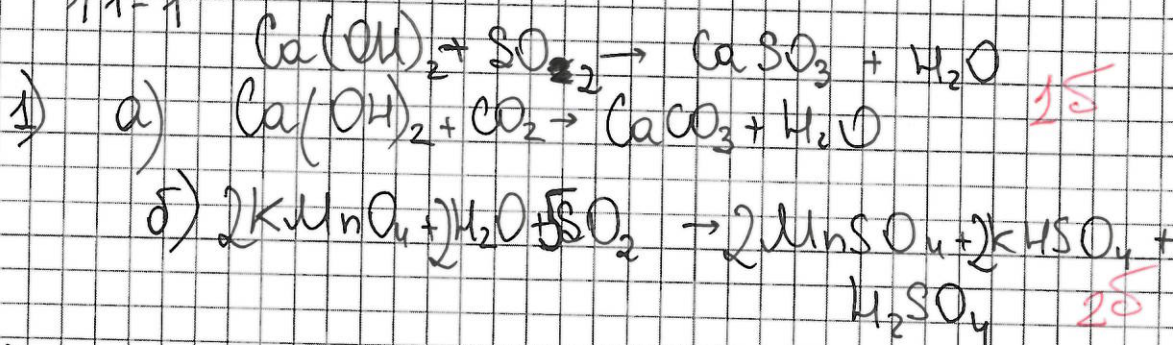 11-1
Ca(OH)₂ + SO₂ → CaSO₃ + H₂O
1) а) Ca(OH)₂ + CO₂ → CaCO₃ + H₂O 1б
б) 2KMnO₄ + 2H₂O + 5SO₂ → 2MnSO₄ + 2KHSO₄ +
H₂SO₄ 2б